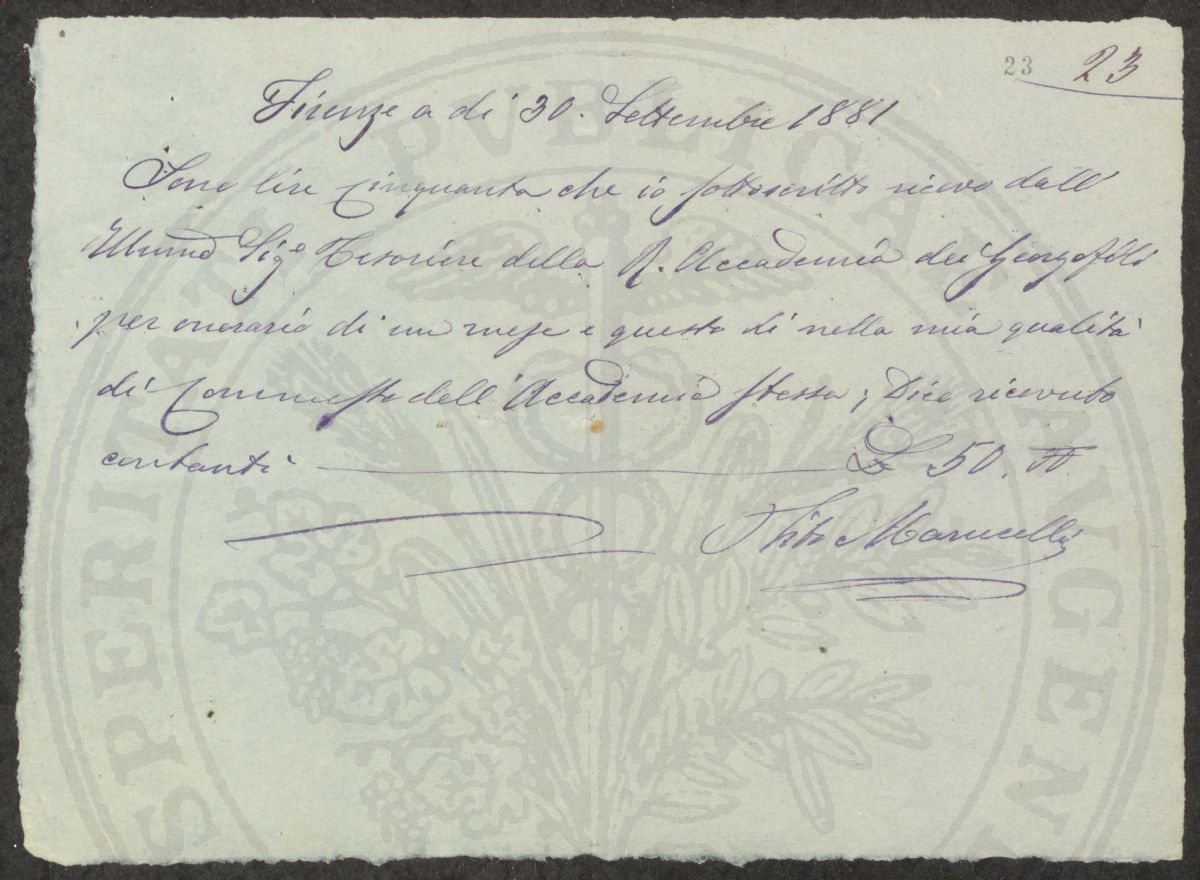 23 23
Firenze a dì 30. Settembre 1881
Sono lire Cinquanta che io sottoscritto ricevo dall'
Illmo Sigr. Tesoriere della R. Accademia dei Georgofili
per onorario di un mese e questo dì nella mia qualità
di Commesso dell'Accademia stessa; Dico ricevuto
contanti £ 50.
Marucelli
PROSPERITATI PVBLICAE AVGENDAE